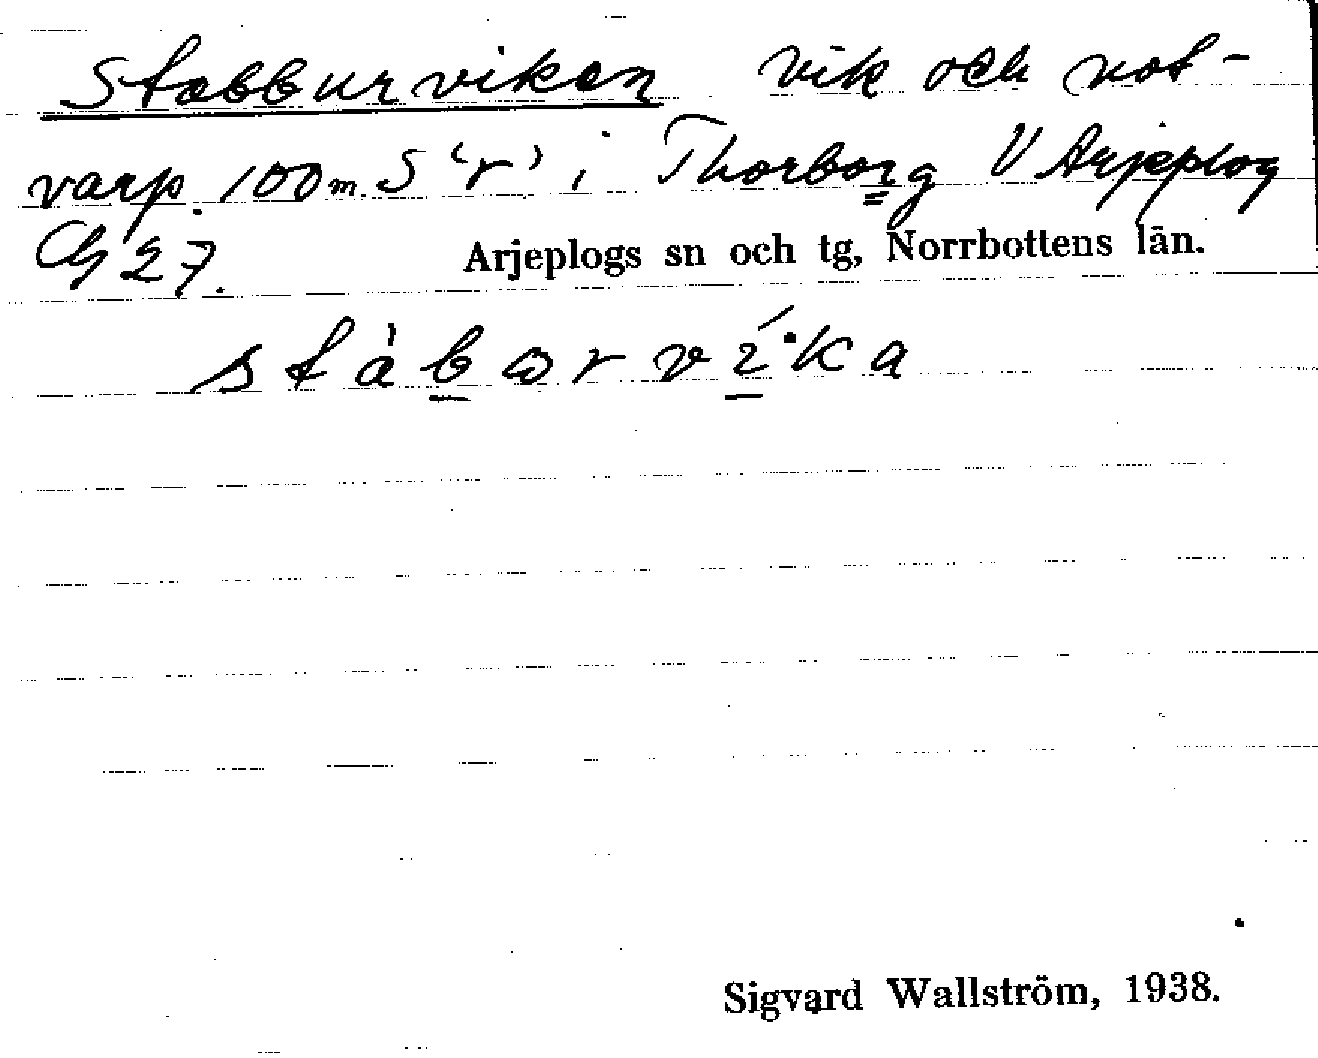 Stabburviken vik och not-
varp. 100m. S 'r' i Thorborg V Arjeplog
Cg 27. Arjeplogs sn och tg, Norrbottens län.
stàbωrví·ka
Sigvard Wallström, 1938.